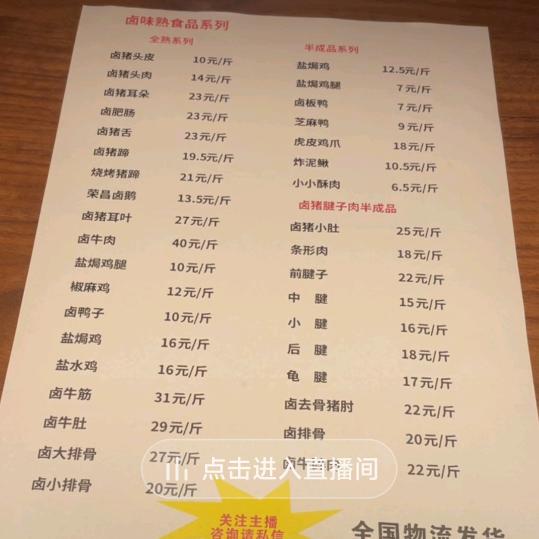 卤味熟食品系列
全熟系列
卤猪头皮 10元/斤
卤猪头肉 14元/斤
卤猪耳朵 23元/斤
卤肥肠 23元/斤
卤猪舌 23元/斤
卤猪蹄 19.5元/斤
烧烤猪蹄 21元/斤
荣昌卤鹅 13.5元/斤
卤猪耳叶 27元/斤
卤牛肉 40元/斤
盐焗鸡腿 10元/斤
椒麻鸡 12元/斤
卤鸭子 10元/斤
盐焗鸡 16元/斤
盐水鸡 16元/斤
卤牛筋 31元/斤
卤牛肚 29元/斤
卤大排骨 27元/斤
卤小排骨 20元/斤
半成品系列
盐焗鸡 12.5元/斤
盐焗鸡腿 7元/斤
卤板鸭 7元/斤
芝麻鸭 9元/斤
虎皮鸡爪 18元/斤
炸泥鳅 10.5元/斤
小小酥肉 6.5元/斤
卤猪腱子肉半成品
卤猪小肚 25元/斤
条形肉 18元/斤
前腱子 22元/斤
中 腱 15元/斤
小 腱 16元/斤
后 腱 18元/斤
龟 腱 17元/斤
卤去骨猪肘 22元/斤
卤排骨 20元/斤
卤牛 22元/斤
点击进入直播间
关注主播
咨询请私信
全国物流发货